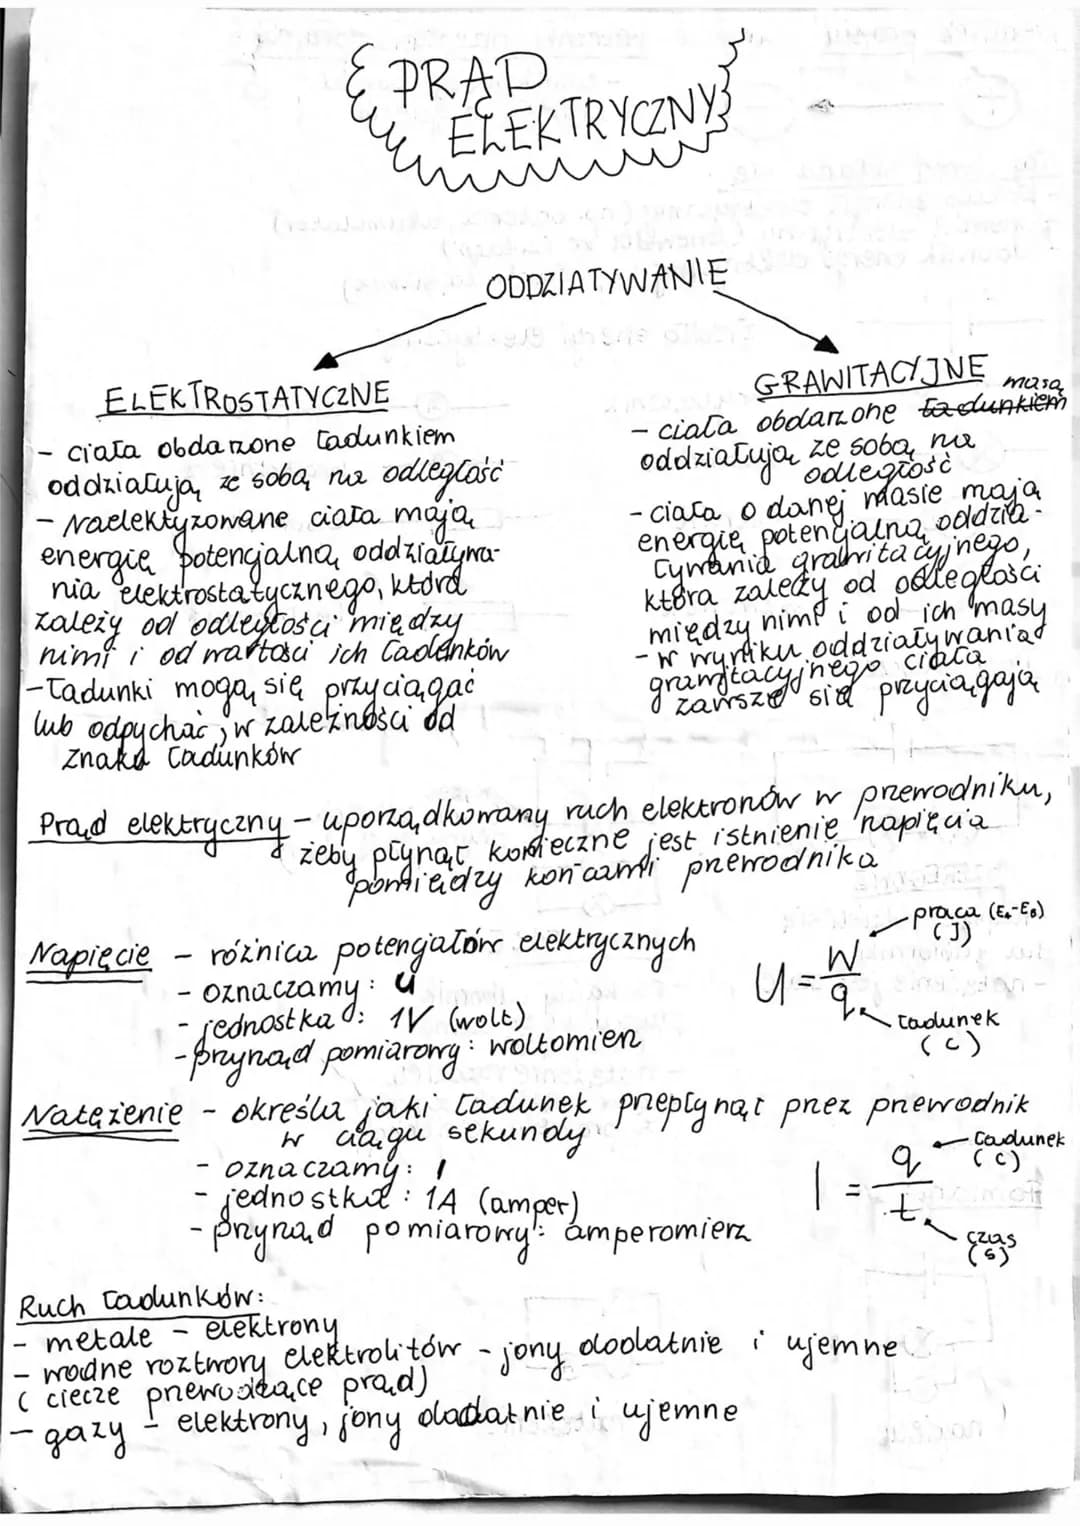 PRĄD
ELEKTRYCZNY
ODDZIAŁYWANIE
ELEKTROSTATYCZNE
- ciała obdarzone ładunkiem
oddziałują ze sobą na odległość
- Naelektyzowane ciała mają
energię potencjalną oddziaływa-
nia elektrostatycznego, która
zależy od odległości między
nimi i od wartości ich ładunków
- ładunki mogą się przyciągać
lub odpychać, w zależności od
znaku ładunków
GRAWITACYJNE
masą
- ciała obdarzone ładunkiem
oddziałują ze sobą na
odległość
- ciała o danej masie mają
energię potencjalną oddzia-
ływania grawitacyjnego,
która zależy od odległości
między nimi i od ich masy
- w wyniku oddziaływania
grawitacyjnego ciała
zawsze się przyciągają
Prąd elektryczny - uporządkowany ruch elektronów w przewodniku,
żeby płynął konieczne jest istnienie napięcia
pomiędzy końcami przewodnika
Napięcie - różnica potencjałów elektrycznych
- oznaczamy: U
- jednostka: 1V (wolt)
- przyrząd pomiarowy: woltomierz
U = W/q
praca (EA-EB)
(J)
ładunek
(C)
Natężenie - określa jaki ładunek przepłynął przez przewodnik
w ciągu sekundy
- oznaczamy: I
- jednostka: 1A (amper)
- przyrząd pomiarowy: amperomierz
I = q/t
ładunek
(C)
czas
(s)
Ruch ładunków:
- metale - elektrony
- wodne roztwory elektrolitów - jony dodatnie i ujemne
(ciecze przewodzące prąd)
- gazy - elektrony, jony dodatnie i ujemne